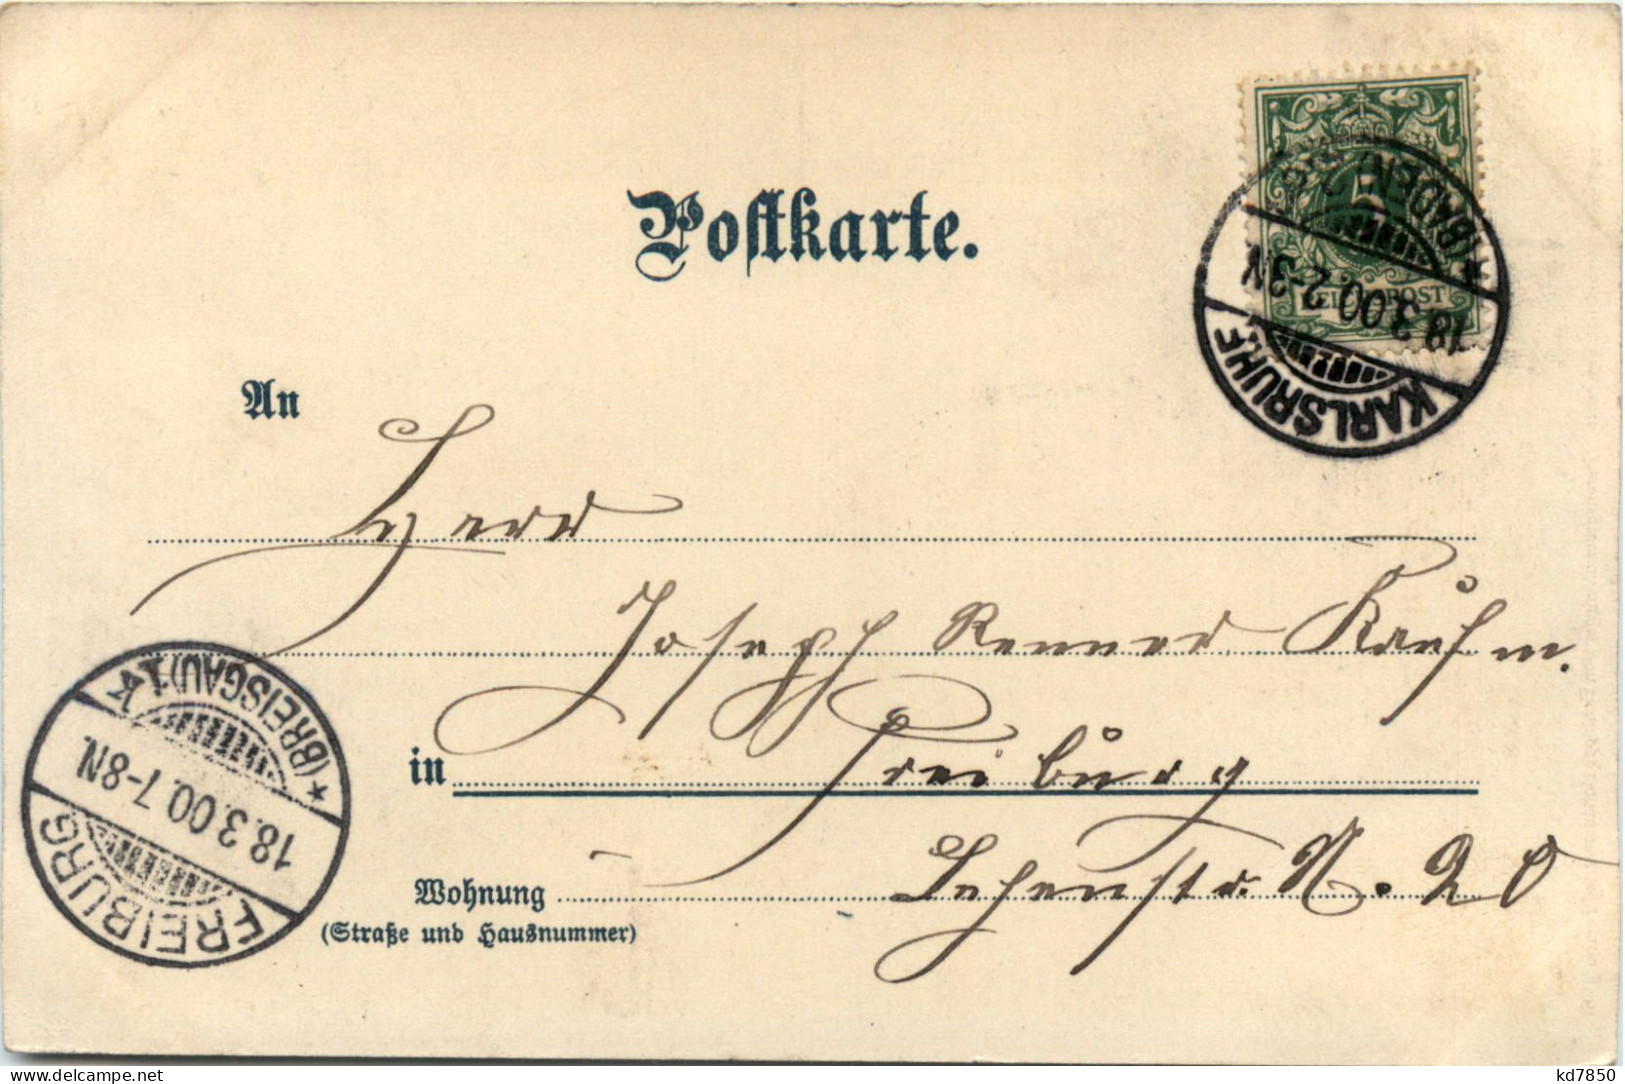 Postkarte.
5
REICHSPOST
(BADEN) 2
18.3.00.2-3N
KARLSRUHE
An
Herrn
Joseph Renner Kaufm.
in Freiburg
Wohnung Lehenstr. N. 20
(Straße und Hausnummer)
FREIBURG
18.3.00.7-8N.
(BREISGAU) 1 K
www.delcampe.net
kd7850